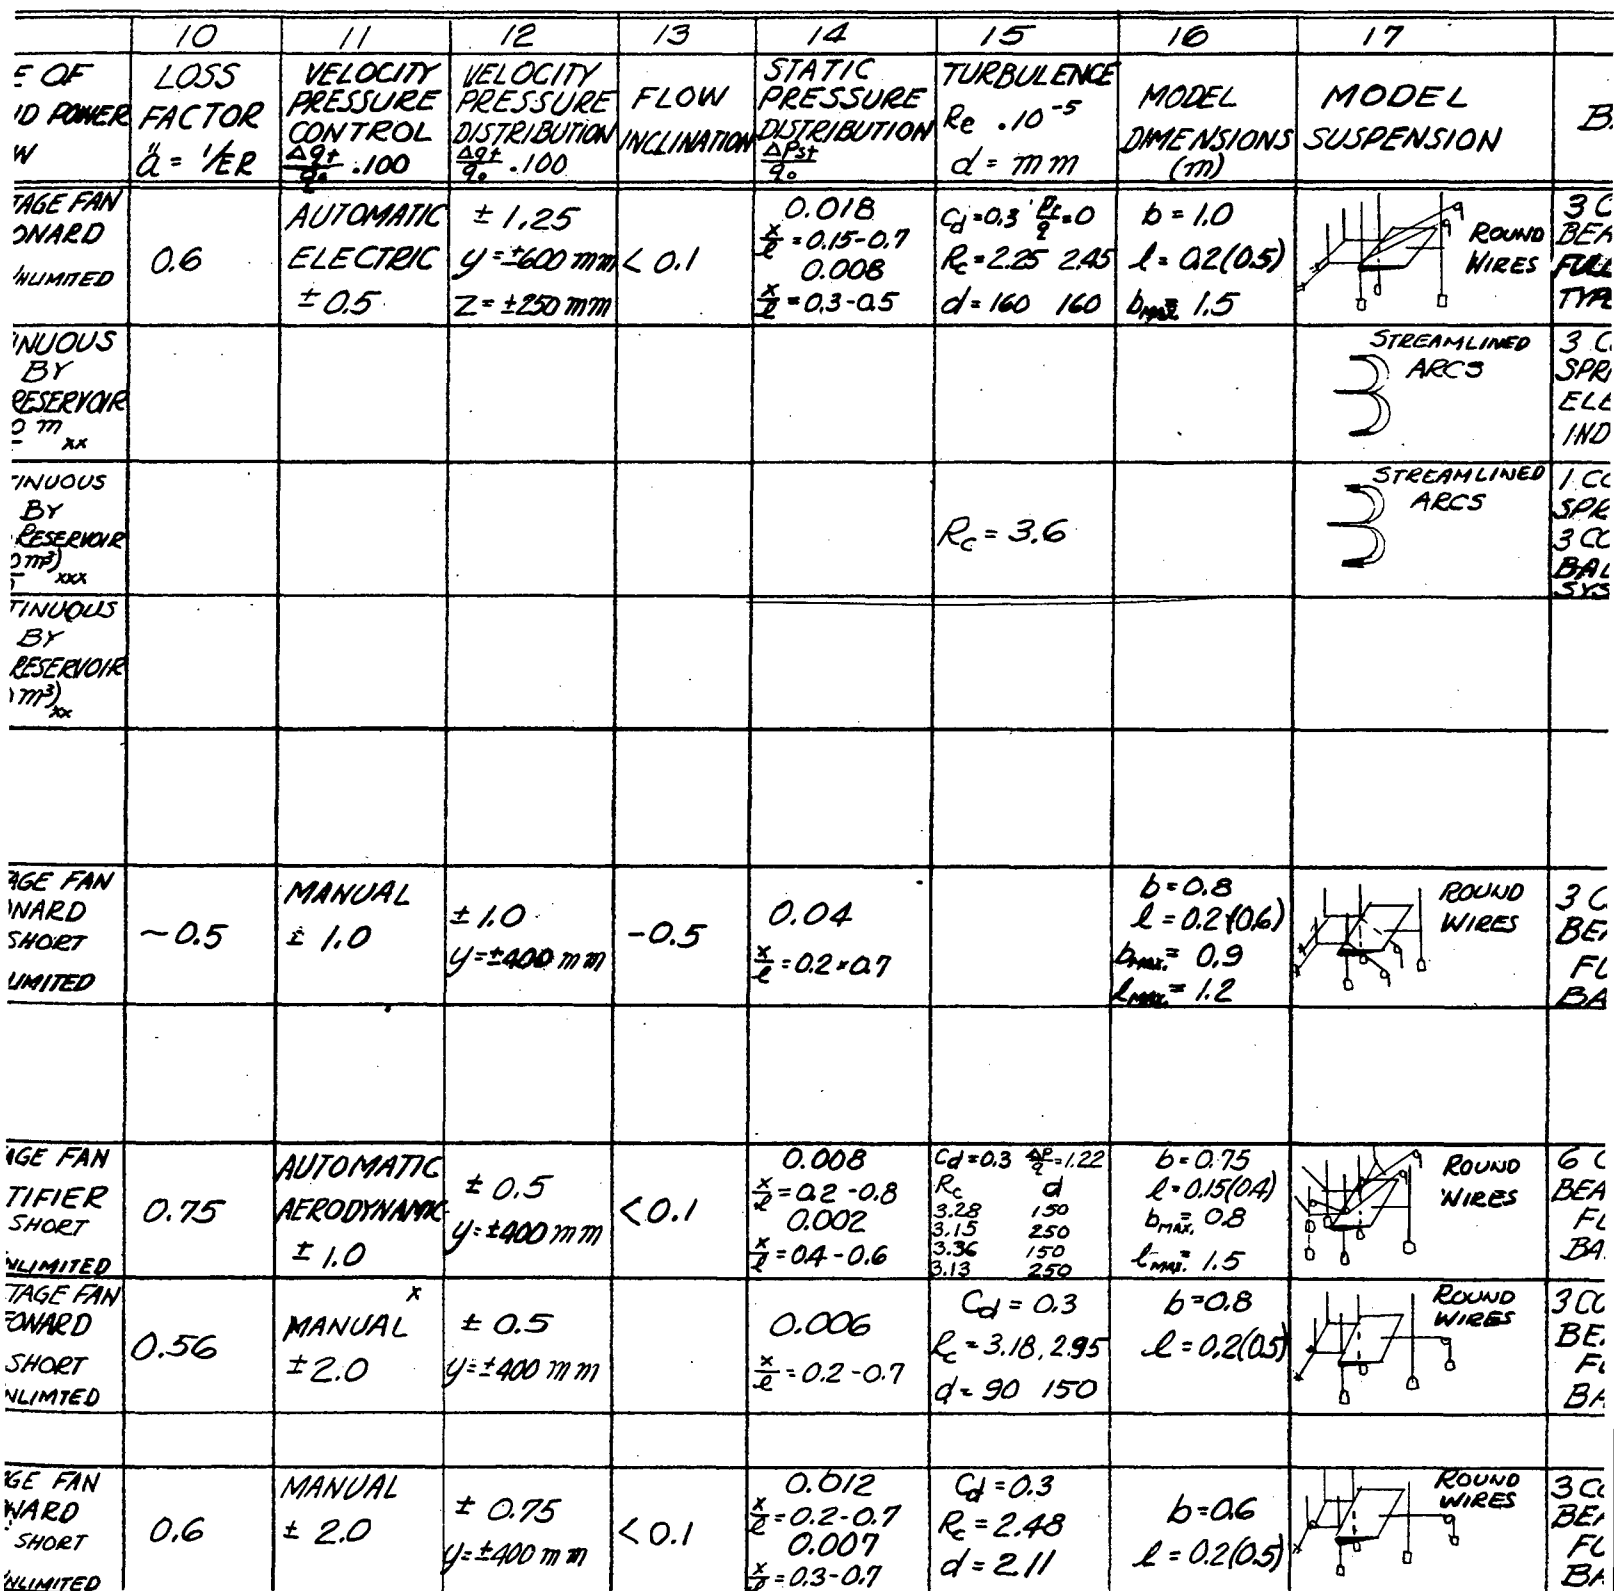 10 11 12 13 14 15 16 17
E OF
ID POWER
W
LOSS
FACTOR
ä = 1/ER
VELOCITY
PRESSURE
CONTROL
Δqt/q₀ .100
VELOCITY
PRESSURE
DISTRIBUTION
Δqt/q₀ .100
FLOW
INCLINATION
STATIC
PRESSURE
DISTRIBUTION
ΔPst/q₀
TURBULENCE
Re .10⁻⁵
d = mm
MODEL
DIMENSIONS
(m)
MODEL
SUSPENSION
B
TAGE FAN
ONARD
NLIMITED
0.6
AUTOMATIC
ELECTRIC
± 0.5
± 1.25
y = ±600 mm
Z = ±250 mm
< 0.1
0.018
x/l = 0.15-0.7
0.008
x/l = 0.3-0.5
Cd=0.3 =0
Rc = 2.25 2.45
d = 160 160
b = 1.0
l = 0.2(0.5)
bMAX. = 1.5
ROUND
WIRES
3 C
BEA
FULL
TYPE
INUOUS
BY
RESERVOIR
0 m
xx
STREAMLINED
ARCS
3 C
SPRI
ELE
IND
TINUOUS
BY
RESERVOIR
0 m³)
xxx
Rc = 3.6
STREAMLINED
ARCS
1 CO
SPR
3 CO
BAL
SYS
TINUOUS
BY
RESERVOIR
m³)
xx
AGE FAN
NARD
SHORT
LIMITED
~0.5
MANUAL
± 1.0
± 1.0
y = ±400 mm
-0.5
0.04
x/l = 0.2×0.7
b = 0.8
l = 0.2(0.6)
bMAX. = 0.9
lMAX. = 1.2
ROUND
WIRES
3 C
BEA
FU
BA
AGE FAN
TIFIER
SHORT
NLIMITED
0.75
AUTOMATIC
AERODYNAMIC
± 1.0
± 0.5
y = ±400 mm
<0.1
0.008
x/l = 0.2-0.8
0.002
x/l = 0.4-0.6
Cd=0.3 ΔP/q=1.22
Rc d
3.28 150
3.15 250
3.36 150
3.13 250
b = 0.75
l = 0.15(0.4)
bMAX. = 0.8
lMAX. = 1.5
ROUND
WIRES
6 C
BEA
FU
BA
TAGE FAN
ONARD
SHORT
NLIMTED
0.56
x
MANUAL
± 2.0
± 0.5
y = ±400 mm
0.006
x/l = 0.2-0.7
Cd = 0.3
Rc = 3.18, 2.95
d = 90 150
b = 0.8
l = 0.2(0.5)
ROUND
WIRES
3 CO
BEA
FU
BA
GE FAN
WARD
SHORT
NLIMITED
0.6
MANUAL
± 2.0
± 0.75
y = ±400 mm
<0.1
0.012
x/l = 0.2-0.7
0.007
x/l = 0.3-0.7
Cd = 0.3
Rc = 2.48
d = 2.11
b = 0.6
l = 0.2(0.5)
ROUND
WIRES
3 CO
BEA
FU
BA